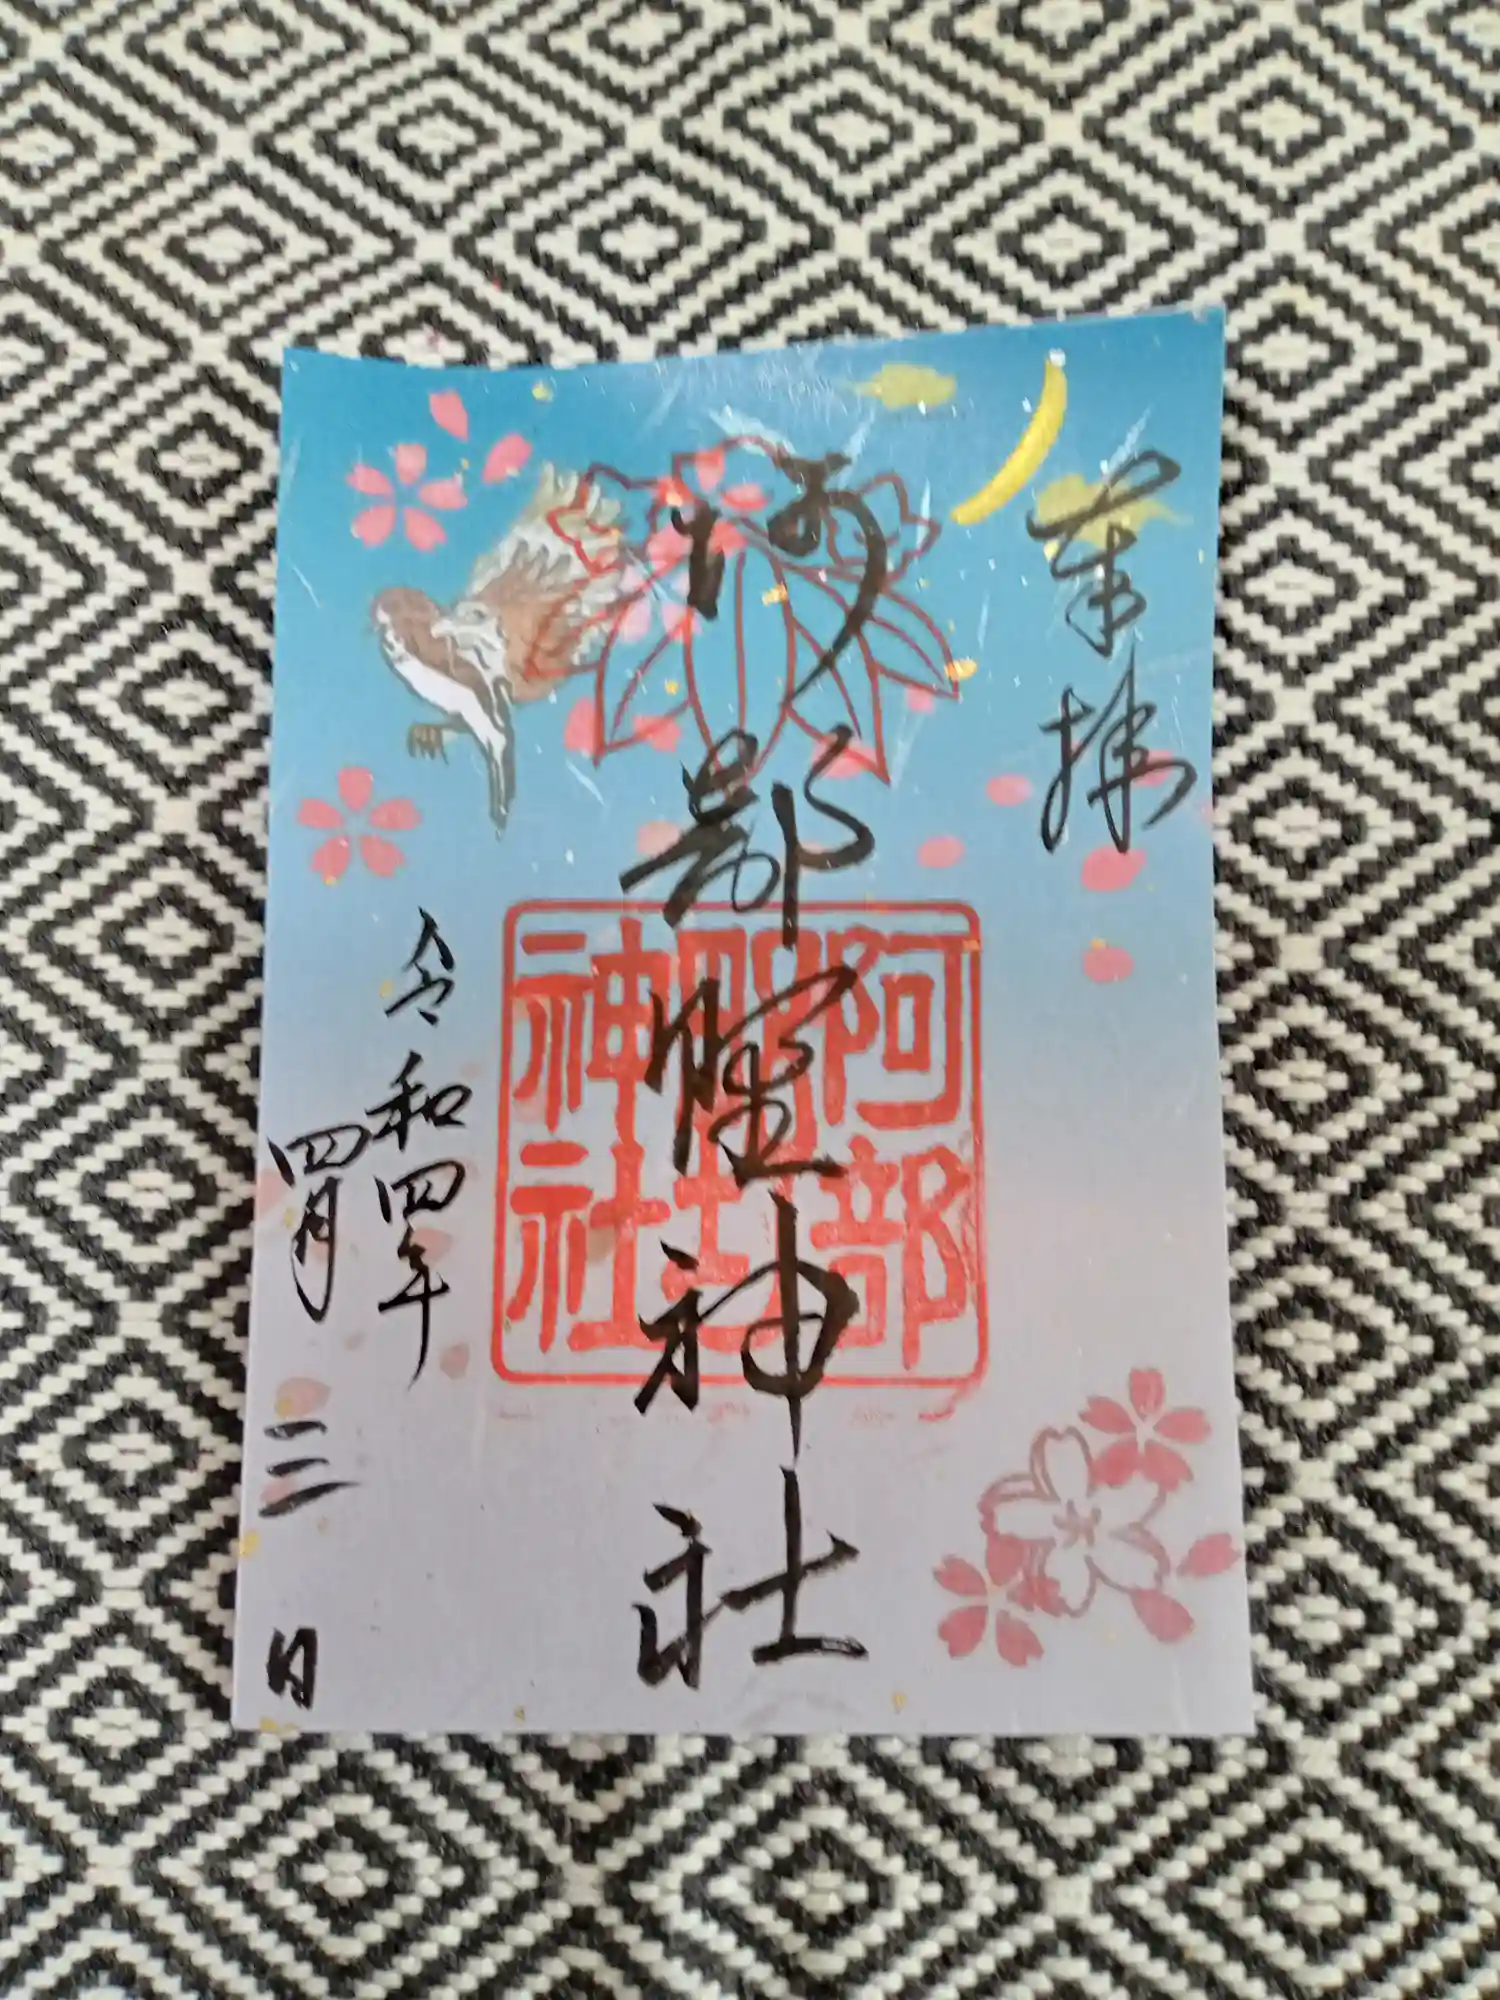 奉拝
阿部野神社
阿部
野
神社
令和四年
四月三日